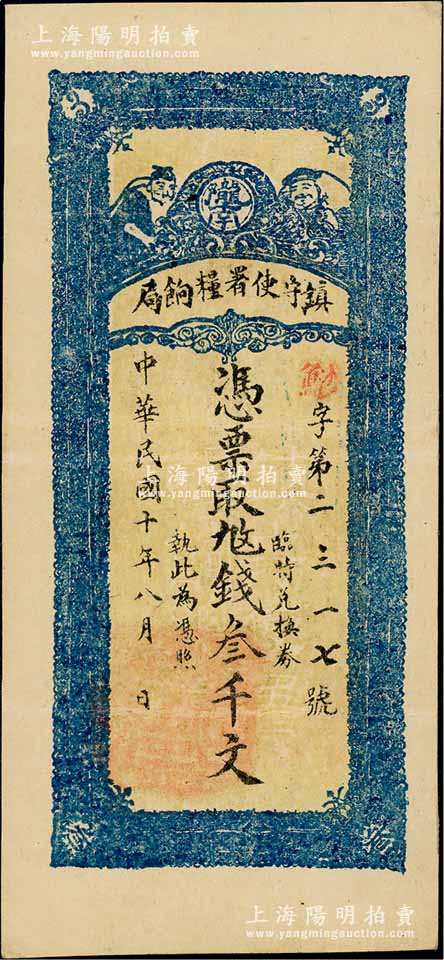 上海陽明拍賣
www.yangmingauction.com
隴字
鎮守使署糧餉局
字第二三一七號
臨時兌換券
憑票取九八錢叁千文
執此為憑照
中華民國十年八月 日
上海陽明拍賣
www.yangmingauction.com
上海陽明拍賣
www.yangmingauction.com